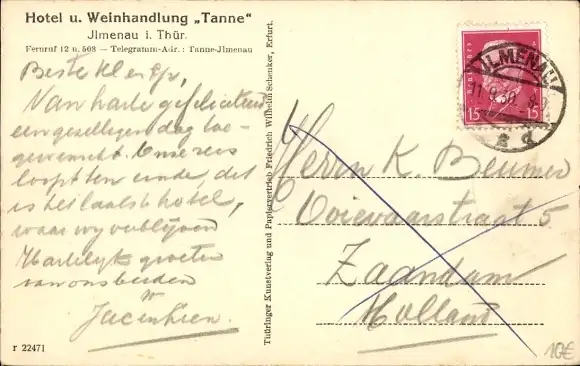 Hotel u. Weinhandlung „Tanne“
Jlmenau i. Thür.
Fernruf 12 u. 508 — Telegramm-Adr.: Tanne-Jlmenau
Beste
Van harte gefeliciteerd
een gezelligen dag toe-
gewenscht. Onze reis
loopt ten einde, dit
is het laatste hotel,
waar wy verblyven
Hartelyke groeten
van ons beiden
r 22471
Thüringer Kunstverlag und Papiervertrieb Friedrich Wilhelm Schenker, Erfurt.
ILMENAU
15 15
Herrn K. Beumer
Ooievaarstraat 5
Zaandam
Holland
10€